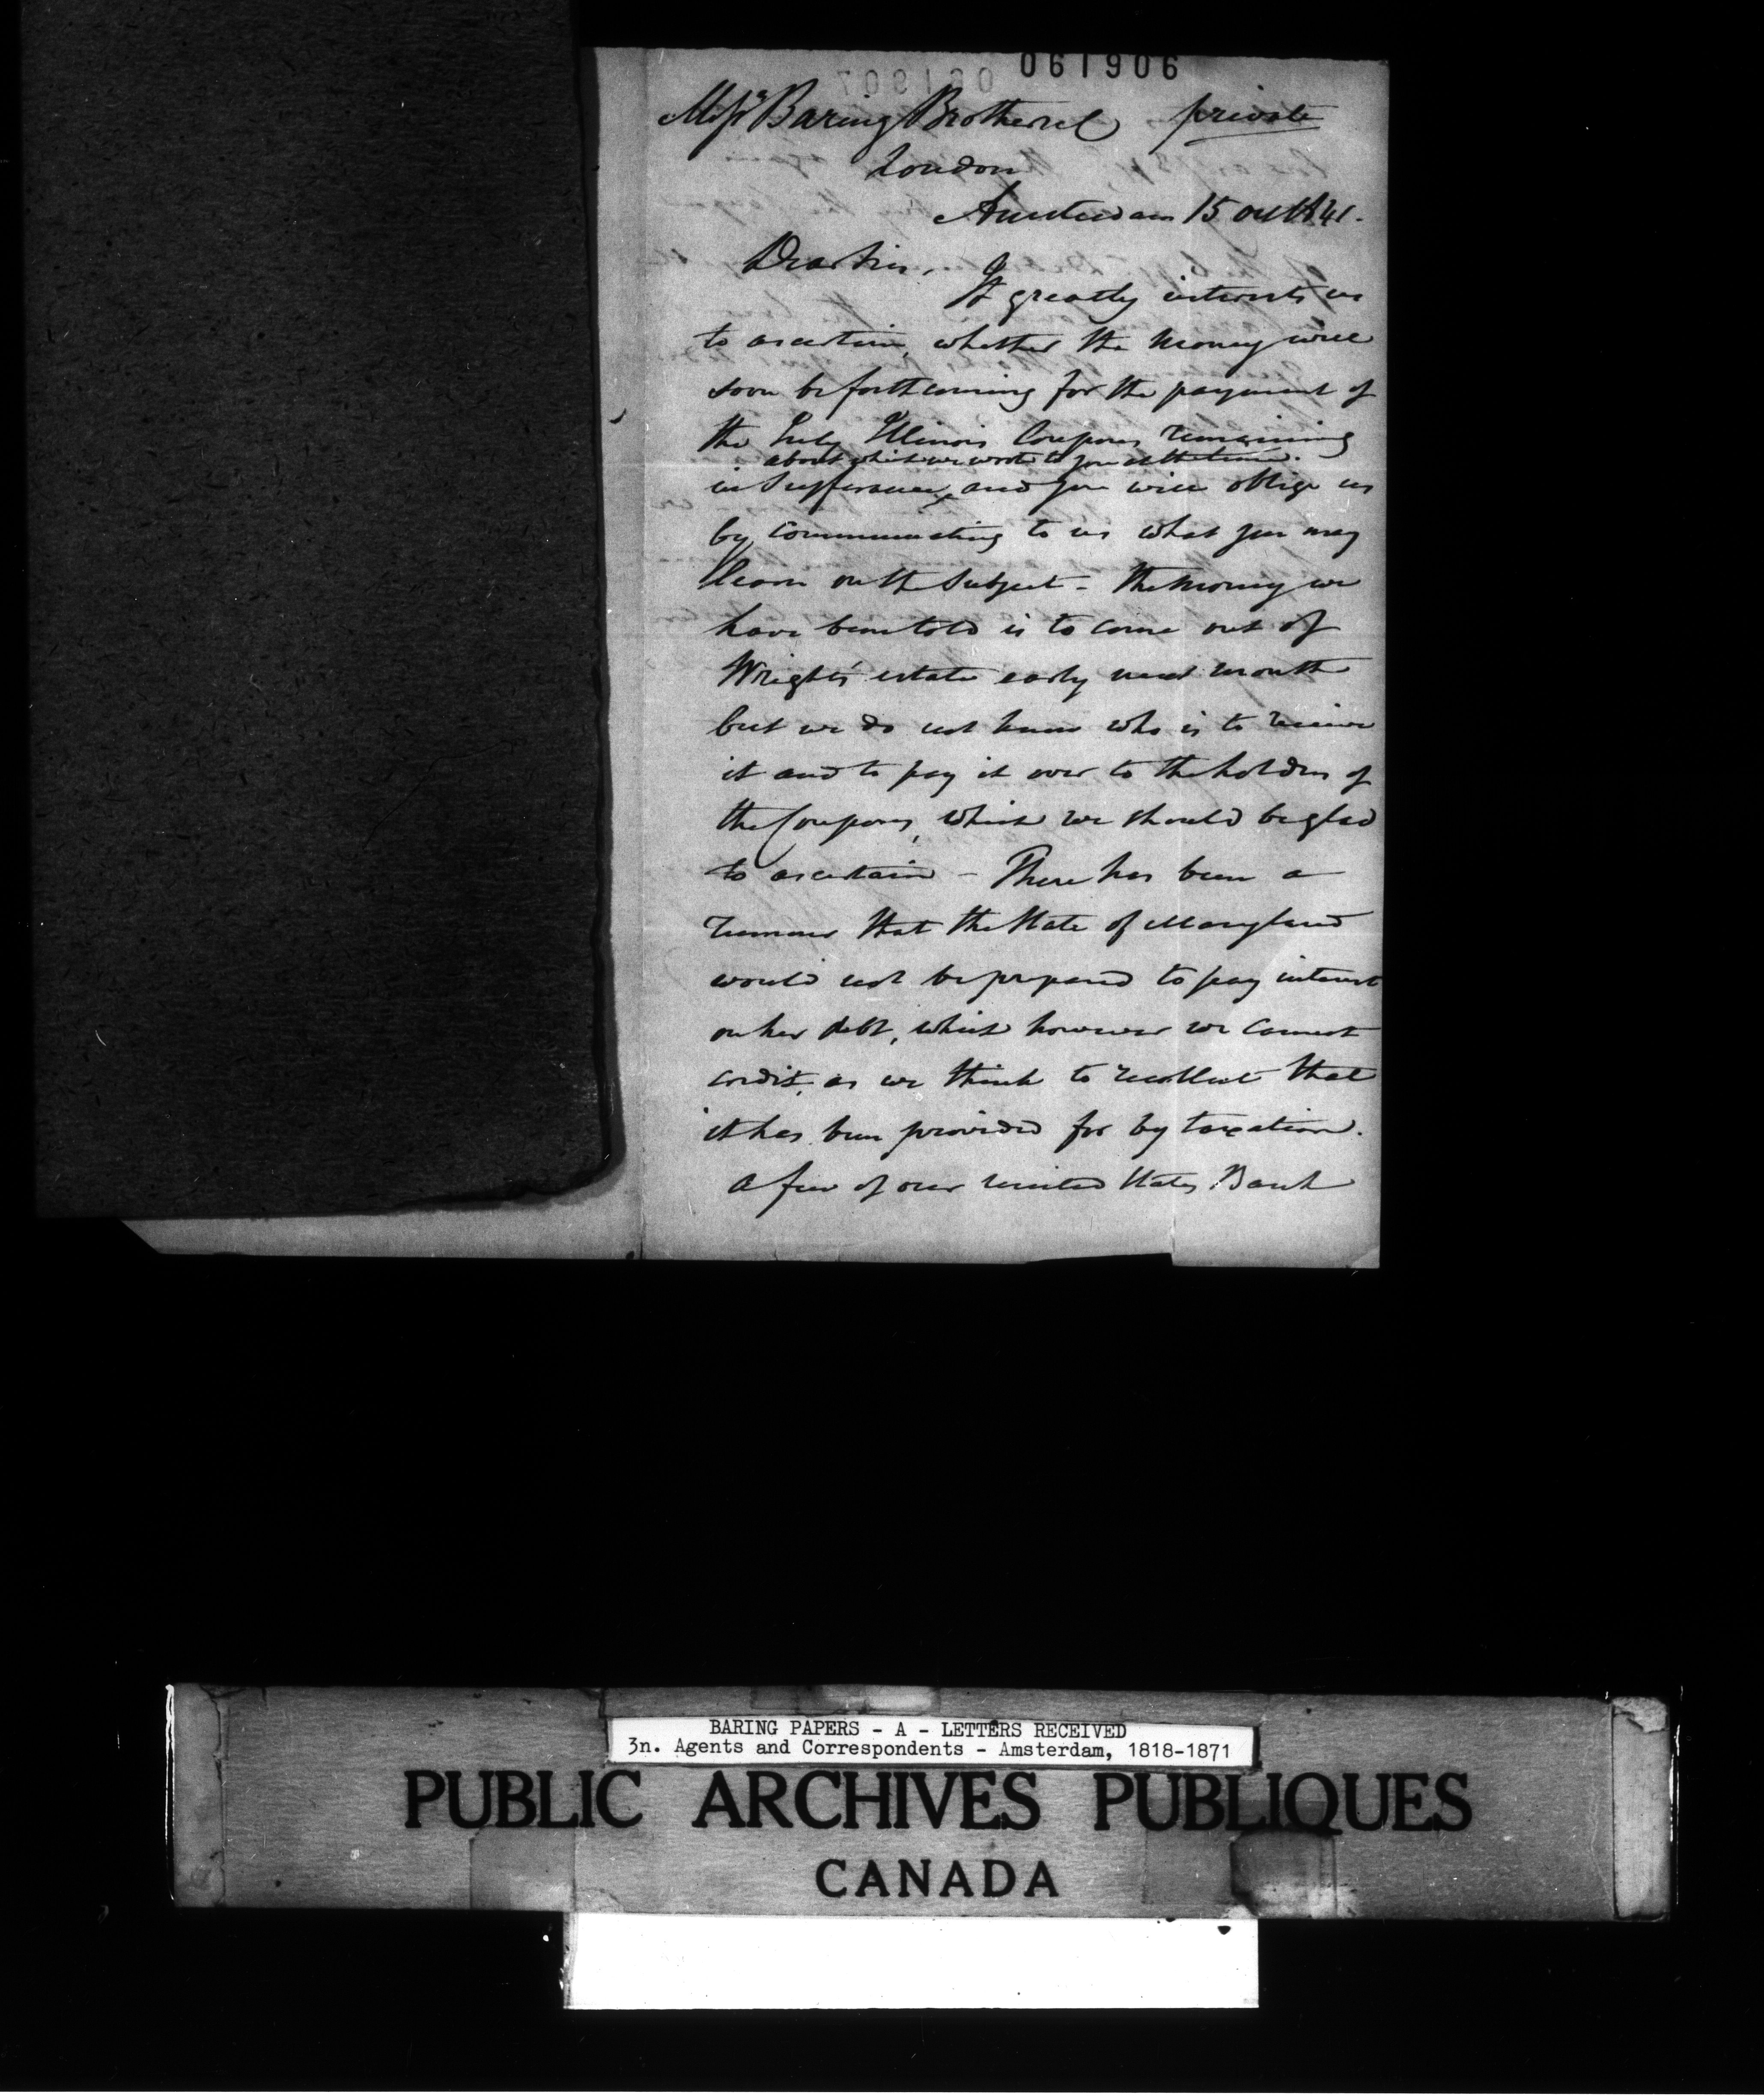 061906
Messrs Baring Brothers & Co private
London
Amsterdam 15 Oct 1841.
Dear Sirs,
It greatly interests us
to ascertain, whether the money will
soon be forthcoming for the payment of
the July Illinois Coupons remaining
about which we wrote to you at the time.
in Sufferance, and you will oblige us
by communicating to us what you may
learn on the subject - The money we
have been told is to come out of
Wright's estate early next month
but we do not know who is to receive
it and to pay it over to the holders of
the Coupons, which we should be glad
to ascertain - There has been a
rumour that the State of Maryland
would not be prepared to pay interest
on her debt, which however we cannot
credit, as we think to recollect that
it has been provided for by taxation.
A few of our United States Bank
BARING PAPERS - A - LETTERS RECEIVED
3n. Agents and Correspondents - Amsterdam, 1818-1871
PUBLIC ARCHIVES PUBLIQUES
CANADA